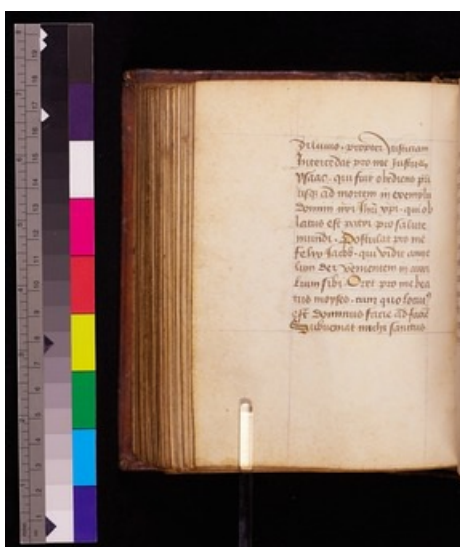 diluuio · propter Iusticiam
Intercedat pro me
ysaac · qui fuit obediens
usq; ad mortem in exemplu
domini nri Ihu xpi · qui ob
latus est patri pro salute
mundi · Postulat pro me
felix Jacob · qui vidit ange
lum dei venientem in
lium sibi · Oret pro me bea
tus moyses · cum quo
est dominus facie ad
Subueniat michi sanctus